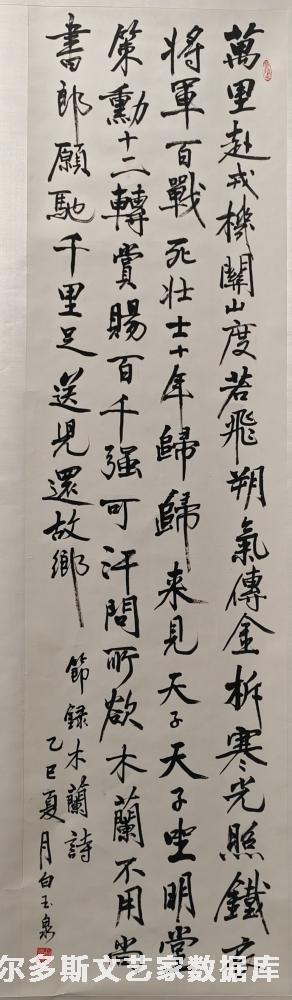 萬里赴戎機關山度若飛朔氣傳金柝寒光照鐵衣
將軍百戰死壯士十年歸歸来見天子天子坐明堂
策勳十二轉賞賜百千强可汗問所欲木蘭不用尚
書郎願馳千里足送兒還故鄉
節録木蘭詩
乙巳夏月白玉泉
尔多斯文艺家数据库